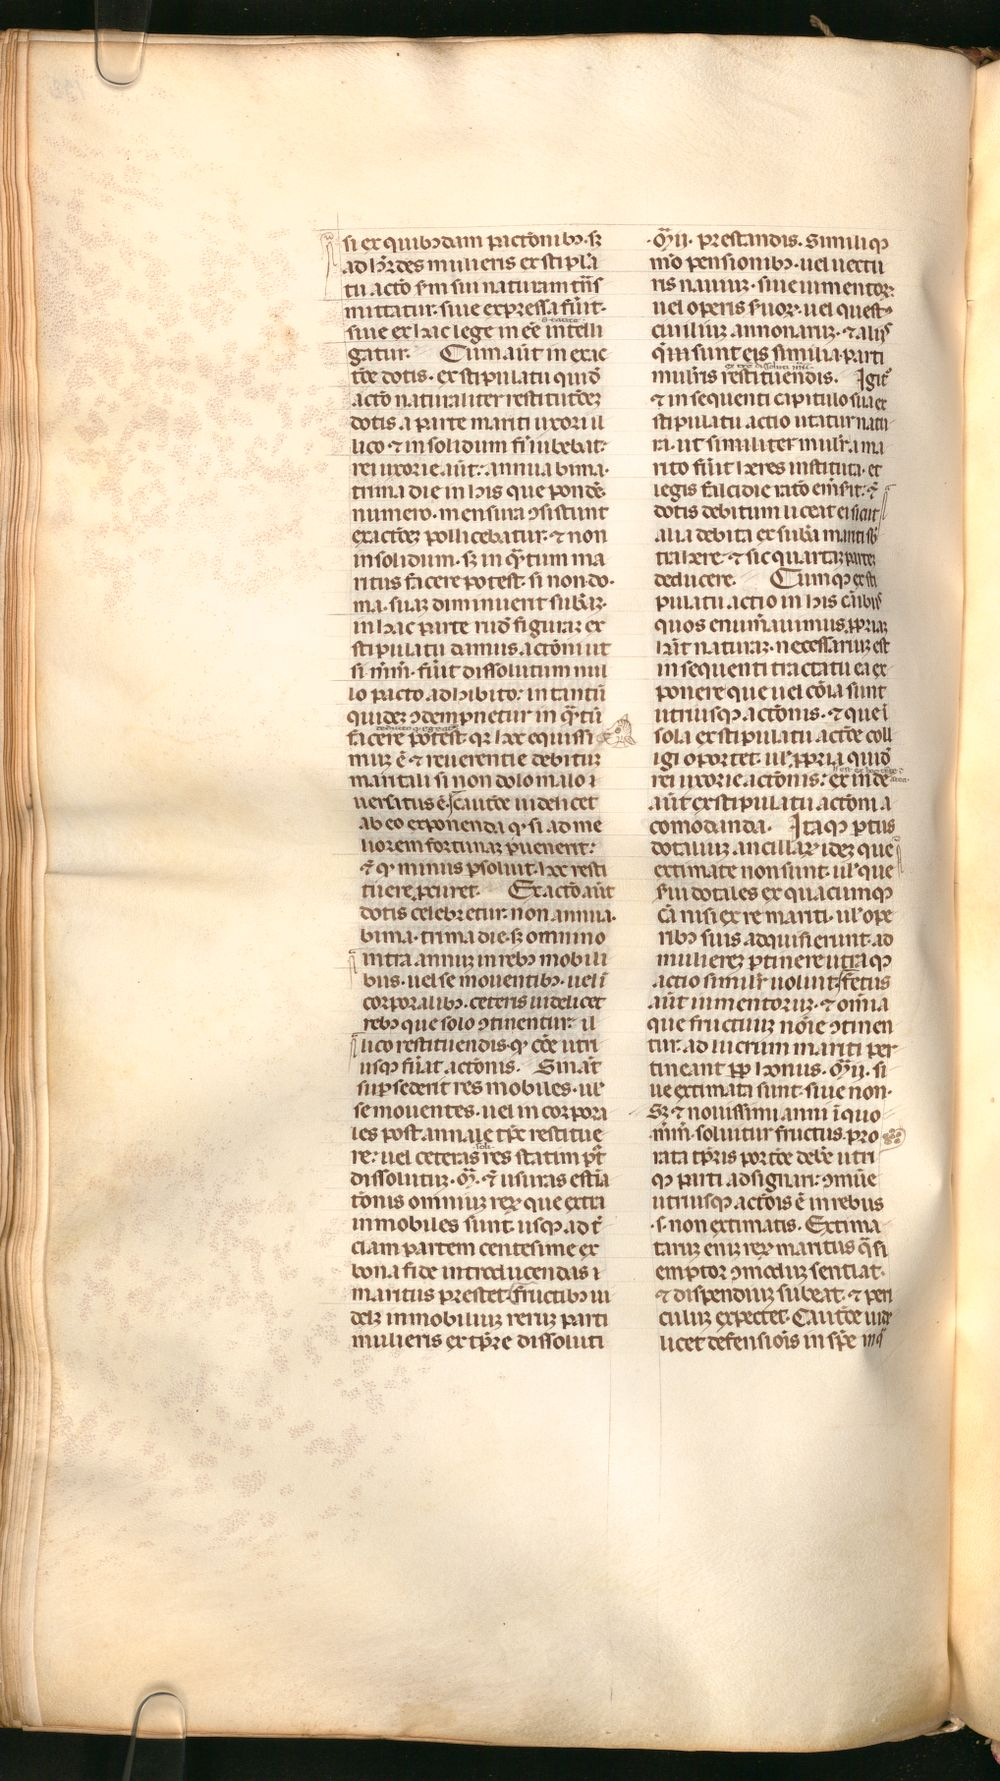 si ex quibꝰdam pactonibꝰ· sꝫ
ad h̅rdes mulieris ex stipl̅a
tu acto s̅m sui naturam t̅n̅s
mittatur· siue expressa fūit·
siue ex hac lege in ēe intelli
gatur· Cum aūt in exac
tōe dotis· ex stipulatu quid̅
acto naturaliter restitutōeꝫ
dotis a parte mariti uxori il
lico ⁊ in solidum fi̅ iubebat·
rei uxorie aūt: annua bima·
trima die in his que pondē·
numero· mensura ↄsistunt
exactōeꝫ pollicebatur· ⁊ non
in solidum· sꝫ in qᷓtum ma
ritus facere potest· si non do·
ma· suaꝫ diminuerit sub̅aꝫ·
in hac parte rud̅ figuraꝫ ex
stipulatu damus actōni ut
si m̅rm̅· fūit dissolutum nul
lo pacto adhibito: in tantū
quideꝫ ↄdempnetur in qᷓtū
facere potest· qꝛ hoc equissi
muꝫ ē· ⁊ reuerentie debituꝫ
maritali si non dolo malo
uersatus ē· cautōe uidelicet
ab eo exponenda qꝫ si ad me
liorem fortunaꝫ puenerit:
⁊ qꝫ minus psoluit· hoc resti
tuere pcuret· Ex acto aūt
dotis celebretur· non annua·
bima· trima die· sꝫ omnino
intra annuꝫ in rebꝰ mobili
bus· uel se mouentibꝰ· uel ī
corporalibꝰ· ceteris uidelicet
rebꝰ que solo ↄtinentur· il
lico restituendis· qꝫ cōe utri
usqꝫ fuāt actonis· Sin aūt
supsederit res mobiles· ul̅
se mouentes· uel incorpora
les post annale tp̅e restitue
re: uel ceteras res statim p̅t
dissolutuꝫ· m̅· ⁊ usuras estīa
tonis omniuꝫ reꝝ que extra
inmobiles sunt· usqꝫ ad t̅
ciam partem centesime ex
bona fide introducendas
maritus prestet· fructibꝰ ui
delꝫ inmobiliuꝫ reruꝫ parti
mulieris ex tp̅re dissoluti
m̅ii· prestandis· Similiqꝫ
mō pensionibꝰ· uel uectu
ris nauiuꝫ· siue iumentoꝝ·
uel operis s̅uoꝝ· uel quest·
ciuiliuꝫ annonaruꝫ· ⁊ aliis
q̅m sunt eis similia· parti
mul̅ris restituendis· Igit᷑
⁊ in sequenti capitulo sua ex
stipulatu actio utatur natu
ra· ut similiter mul̅r· a ma
rito fūit heres instituta· et
legis falcidie rato em̅sit· ⁊
dotis debitum liceat ei sicut
alia debita ex sub̅a mariti sb̅
trahere· ⁊ sic quartaꝫ partē
deducere· Cumqꝫ ex sti
pulatu actio in his caibꝰ
quos enum̅auimus ppriaꝫ
hāt naturaꝫ· necessariuꝫ est
in sequenti tractatu ea ex
ponere que uel cōia sunt
utriusqꝫ actōnis· ⁊ que ī
sola ex stipulatu actōe coll
igi oportet· ul̅ ppria quid̅
rei uxorie actōnis: ex inde
aūt ex stipulatu actōni a
comodanda· Itaqꝫ ptus
dotaliuꝫ ancillaꝝ ideꝫ que
extimate non sunt· ul̅ que
s̅ui dotales ex quacumqꝫ
cā nisi ex re mariti· ul̅ ope
ribꝰ suis adquisierunt· ad
muliereꝫ ptinere utraqꝫ
actio simil̅r uoluit· fetus
aūt iumentoruꝫ· ⁊ om̅ia
que fructuuꝫ noīe ↄtinen
tur· ad lucrum mariti per
tineant pp honus· m̅ii· si
ue extimata sunt· siue non·
Sꝫ ⁊ nouissimi anni ī quo
m̅rm̅· soluitur fructus· pro
rata tp̅ris portōe debē utri
qꝫ parti adsignari: ↄmūe
utriusqꝫ actōis ē in rebus
·s· non extimatis· Extima
taruꝫ eniꝫ reꝝ maritus qᷓsi
emptor ↄmoduꝫ sentiat·
⁊ dispendiuꝫ subeat· ⁊ peri
culuꝫ expectet· Cautōe uide
licet defensiōis in sp̅e